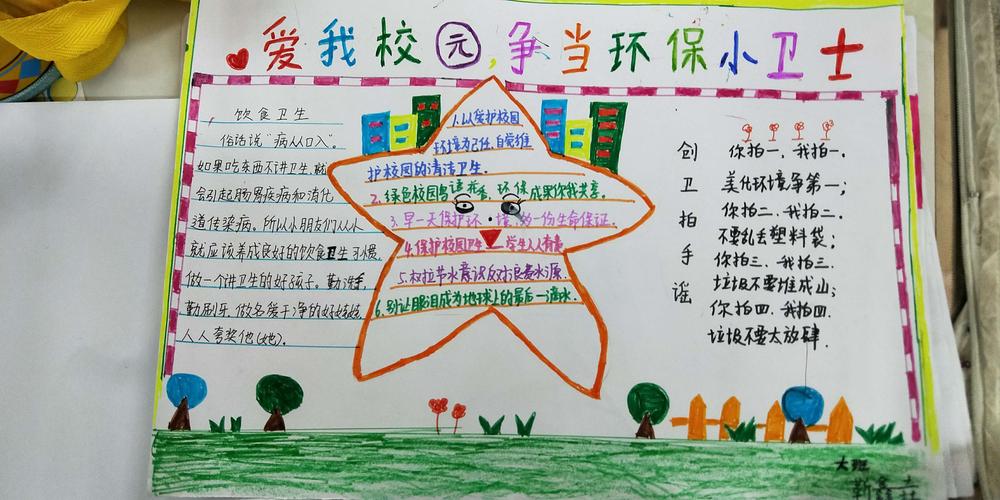 爱我校园,争当环保小卫士
饮食卫生
俗话说"病从口入"。
如果吃东西不讲卫生,就
会引起肠胃疾病和消化
道传染病。所以小朋友们从小
就应该养成良好的饮食卫生习惯,
做一个讲卫生的好孩子。勤洗手,
勤刷牙,做名爱干净的好娃娃,
人人夸奖他(她)。
1.以爱护校园
环境为己任,自觉维
护校园的清洁卫生.
2.绿色校园鸟语花香,环保成果你我共享。
3.早一天保护环境,多一份生命保证.
4.保护校园卫生——学生人人有责
5.树立节水意识反对浪费水源.
6.别让眼泪成为地球上的最后一滴水.
创卫拍手谣
你拍一,我拍一,
美化环境争第一;
你拍二,我拍二,
不要乱丢塑料袋;
你拍三,我拍三,
垃圾不要堆成山;
你拍四,我拍四,
垃圾不要太放肆.
大班
靳